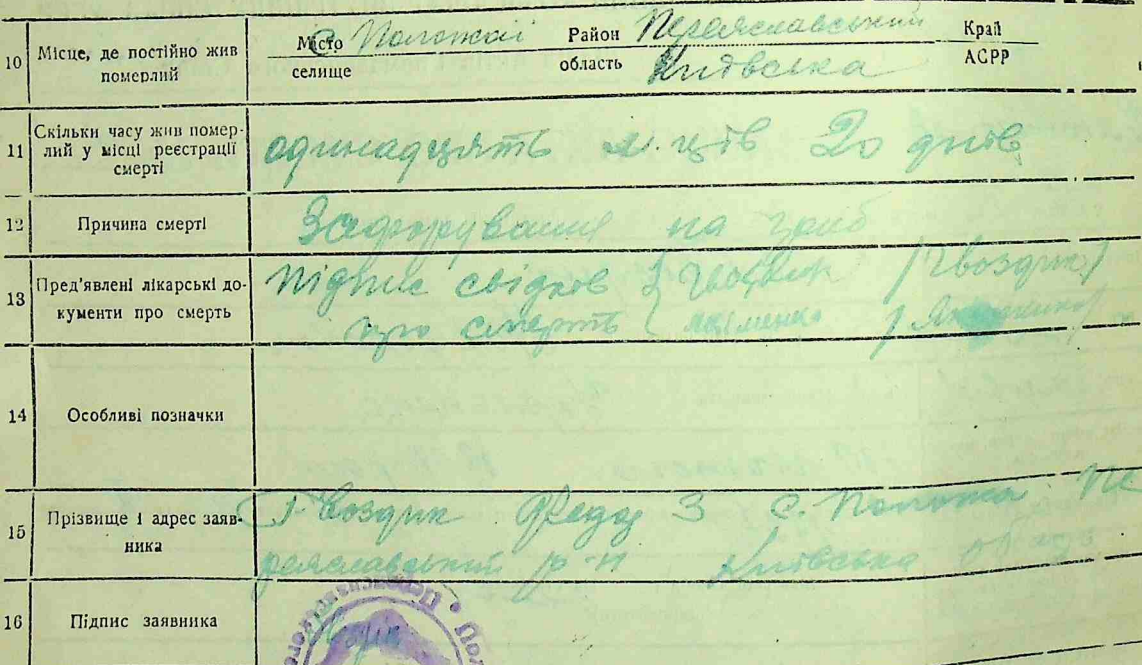 10 Місце, де постійно жив померлий Місто селище с Положаї Район Переяславський область Київська Край АСРР
11 Скільки часу жив померлий у місці реєстрації смерті одинадцять м.ців 20 днів
12 Причина смерті на
13 Пред'явлені лікарські документи про смерть підпис свідков { Гвоздик /Гвоздик/
про смерть { Якименко / Якименко/
14 Особливі позначки
15 Прізвище і адрес заявника Гвоздик Федор З с. Положаї Пе
реяславський р-н Київська обл
16 Підпис заявника